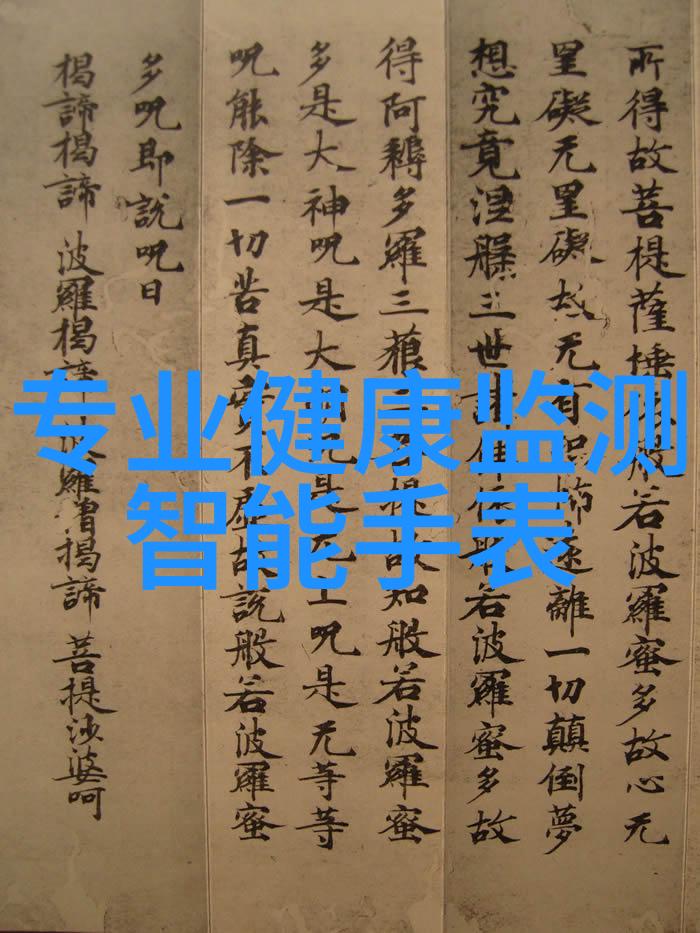 所得故菩提薩埵依般若波羅蜜多故心无
罣礙无罣礙故无有恐怖遠離一切顛倒夢
想究竟涅槃三世諸佛依般若波羅蜜多故
得阿耨多羅三藐三菩提故知般若波羅蜜
多是大神呪是大明呪是无上呪是无等等
呪能除一切苦真實不虛故說般若波羅蜜
多呪即說呪曰
揭諦揭諦 波羅揭諦 波羅僧揭諦 菩提沙婆呵
专业健康监测
智能手表